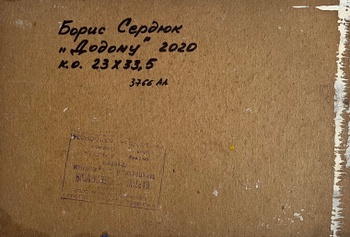 Борис Сердюк
„Додому" 2020
к.о. 23х33,5
3766 АА